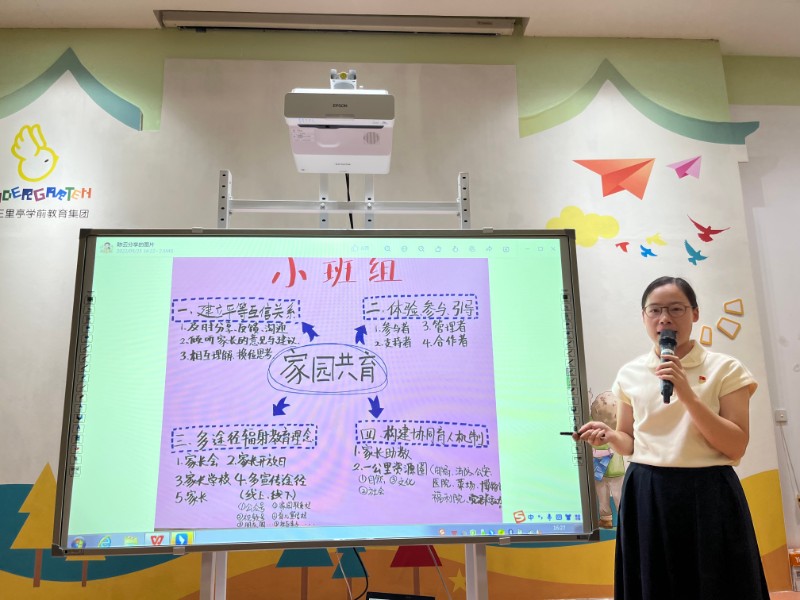 KINDERGARTEN
三里亭学前教育集团
EPSON
小班组
一.建立平等互信关系
1.及时分享、反馈、沟通
2.倾听家长的意见与建议
3.相互理解、换位思考
二.体验.参与.引导
1.参与者 3.管理者
2.支持者 4.合作者
家园共育
三.多途径辐射教育理念
1.家长会 2.家长开放日
3.家长学校 4.多宣传途径
5.家长 (线上、线下)
①公众号
四.构建协同育人机制
1.家长助教
2.一公里资源圈
①自然 ②文化
③社会
医院、菜场、博物
福利院
中
16:27